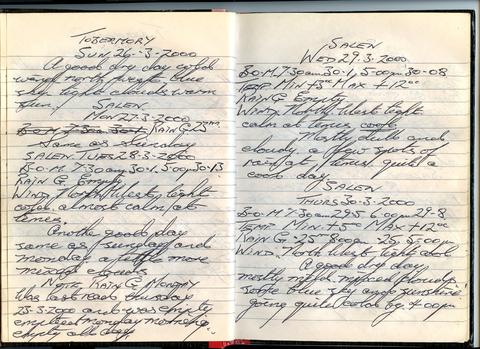 TOBERMORY
SUN 26-3-2000
A good dry day cold
wind North West blue
sky light clouds warm
sun.
SALEN
MON 27-3-2000
B-O-M 7-30am RAIN G 25
Same as Sunday
SALEN TUES 28-3-2000
B-O-M 7-30am 30-1, 5-00pm 30-13
RAIN G Empty
WIND North West light
cold almost calm at
times.
Another good day
same as Sunday and
Monday a little more
mixed clouds
NOTE RAIN G MONDAY
Was last read Thursday
23-3-2000 and was empty
emptied Monday morning
empty all day.
SALEN
WED 29.3.2000
B-O-M, 7-30am 30-1, 5-00pm 30-08
TEMP MIN +3 MAX +12
RAIN G Empty
WIND North West light
calm at times cool
Mostly dull and
cloudy a few spots of
rain at times quite a
cool day
SALEN
THURS 30-3-2000
B-O-M 7-30am 29.5 6.00pm 29-8
TEMP MIN +5 MAX +12
RAIN G 25 8-00am 25, 5.00pm
WIND North West light cool
A good dry day
mostly mixed clouds
some blue sky and sunshine
going quite cold by 4-00pm